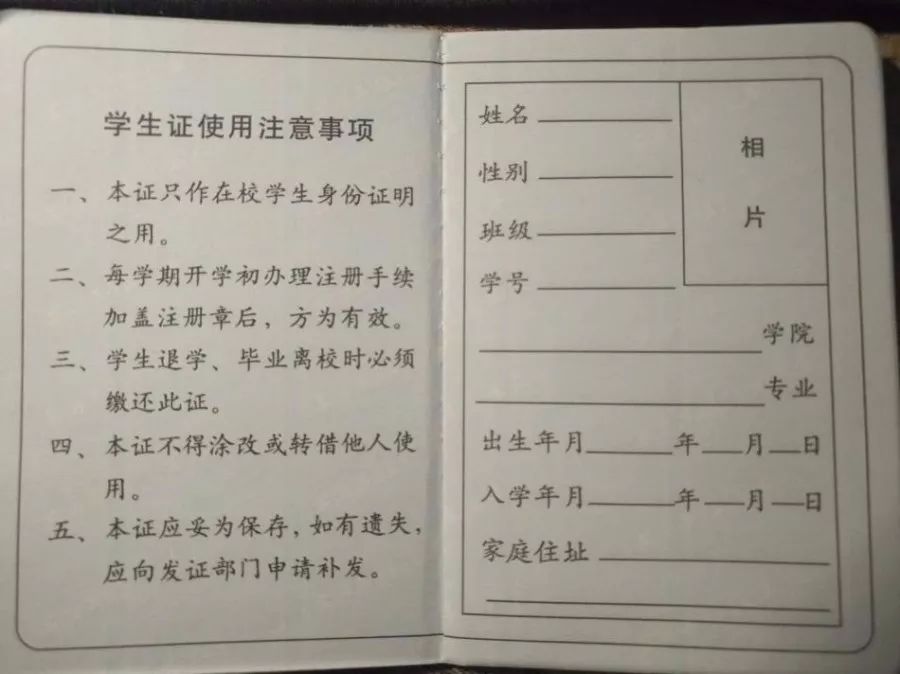 学生证使用注意事项
一、本证只作在校学生身份证明
之用。
二、每学期开学初办理注册手续
加盖注册章后，方为有效。
三、学生退学、毕业离校时必须
缴还此证。
四、本证不得涂改或转借他人使
用。
五、本证应妥为保存，如有遗失，
应向发证部门申请补发。
姓名
性别
班级
学号
相
片
学院
专业
出生年月 年 月 日
入学年月 年 月 日
家庭住址